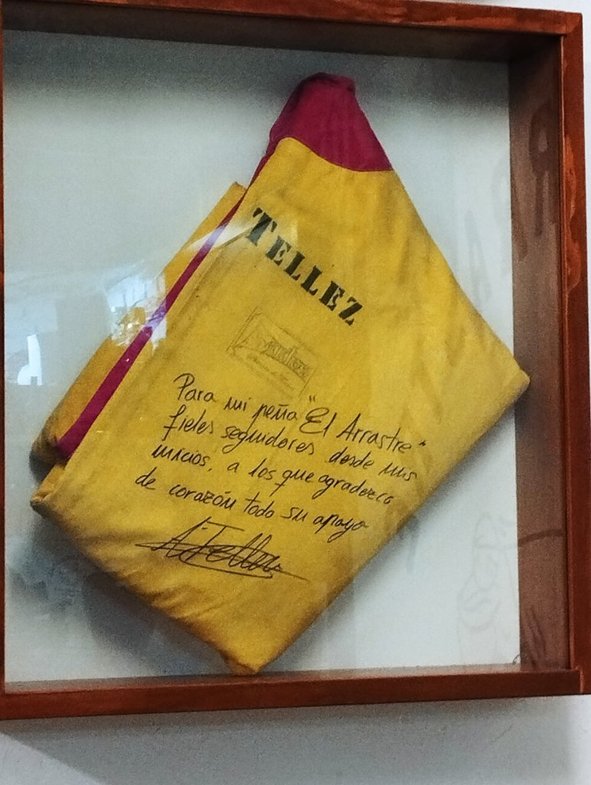 TELLEZ
Para mi peña "El Arrastre"
fieles seguidores desde mis
inicios, a los que agradezco
de corazón todo su apoyo
A. Tellez